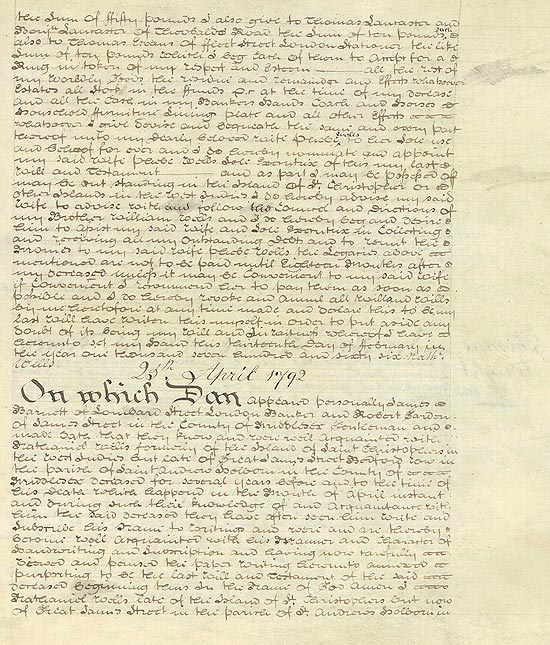 the Sum of fifty pounds I also give to Thomas Lancaster and
Benjn. Lancaster of Theobalds Road the Sum of ten pounds Each
also to Thomas Evans of Street London Stationer the like
Sum of ten pounds which I beg Each of them to accept for a
Ring in token of my respect and Esteem all the rest of
my Worldly Goods the residue and remainder and Effects whatsoever
Estates all Stock in the ffunds &c at the time of my decease
and all the Cash in my Bankers Hands Coach and Horses
Household ffurniture Linning plate and all other Effects
whatsoever I give devise and bequeath the same and every part
thereof unto my dearly beloved wife Phebe Wells to her sole use
and behoof for ever and I do hereby nominate and appoint
my said wife Phebe Wells Sole Executrix of this my last
Will and Testament and as part I may be possessed of
may be out standing in the Island of St. Christopher or
other Islands in the West Indies I do hereby advise my said
Wife to advise with and follow the Council and directions of
my Brother William Wells and I do hereby beg and desire
him to assist my said wife and Sole Executrix in Collecting
and receiving all my Outstanding Debts and to remit the
Incomes to my said wife Phebe Wells the Legacies above
mentioned are not to be paid until Eighteen Months after
my deceased unless it may be Convenient to my said wife
if Convenient I recommend her to pay them as soon as
possible and I do hereby revoke and annul all Will and Wills
by me heretofore at any time made and declare this to be my
last will have written this myself in order to put aside any
doubt of its being my Will and In witness whereof I have
hereunto set my Hand this thirteenth Day of ffebruary in
the year one thousand seven hundred and sixty six Nathl.
Wells.
25th. April 1792
On which Day appeared personally James
Barnett of Lombard Street London Banker and Robert
of James Street in the County of Middlesex Gentleman and
made Oath that they knew and were well Acquainted with
Nathaniel Wells formerly of the Island of Saint Christophers in
the West Indies but late of Great James Street Bedford Row in
the parish of Saint Andrew Holborn in the County of
Middlesex deceased for several years before and to the time of
his Death which happened in the Month of April instant
and during such their knowledge of and Acquaintance with
him the said deceased they have often seen him write and
Subscribe his Name to Writings and were and are thereby
become well Acquainted with his Manner and Character of
Handwriting and Subscription and having now carefully
Viewed and perused the paper writing hereunto annexed
purporting to be the last Will and Testament of the said
deceased beginning thus In the Name of God Amen I
Nathaniel Wells late of the Island of St. Christophers but now
of Great James Street in the parish of St. Andrews Holborn in